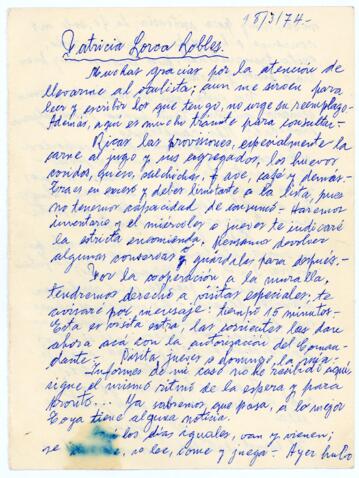 18/3/74.-
Patricia Lorca Robles.
Muchas gracias por la atención de
llevarme al oculista; aun me sirven para
leer y escribir los que tengo, no urge su reemplazo.
Además, aquí es mucho trámite para consultar.-
Ricas las provisiones, especialmente la
carne al jugo y sus agregados, los huevos
cocidos, queso, salchichas, ave, café y demás.-
en exceso y debes limitarte a la lista, pues
no tenemos capacidad de consumo.- Haremos
inventario y el miércoles o jueves te indicaré
la estricta encomienda. Pensamos devolver
algunas conservas ó guardarlas para después.-
Por la cooperación a la muralla,
tendremos derecho a visitas especiales, te
avisaré por mensaje: tiempo 15 minutos.-
Esta es visita extra, las corrientes las dan
ahora acá con la autorización del Coman-
dante.- Visita jueves o domingo la
Informes de mi caso no he recibido aquí,
sigue el mismo ritmo de la espera y para
pronto... Ya sabremos que pasa, a lo mejor
Goya tiene alguna noticia.
los días iguales, van y vienen;
se lee, come y juega.- Ayer hubo